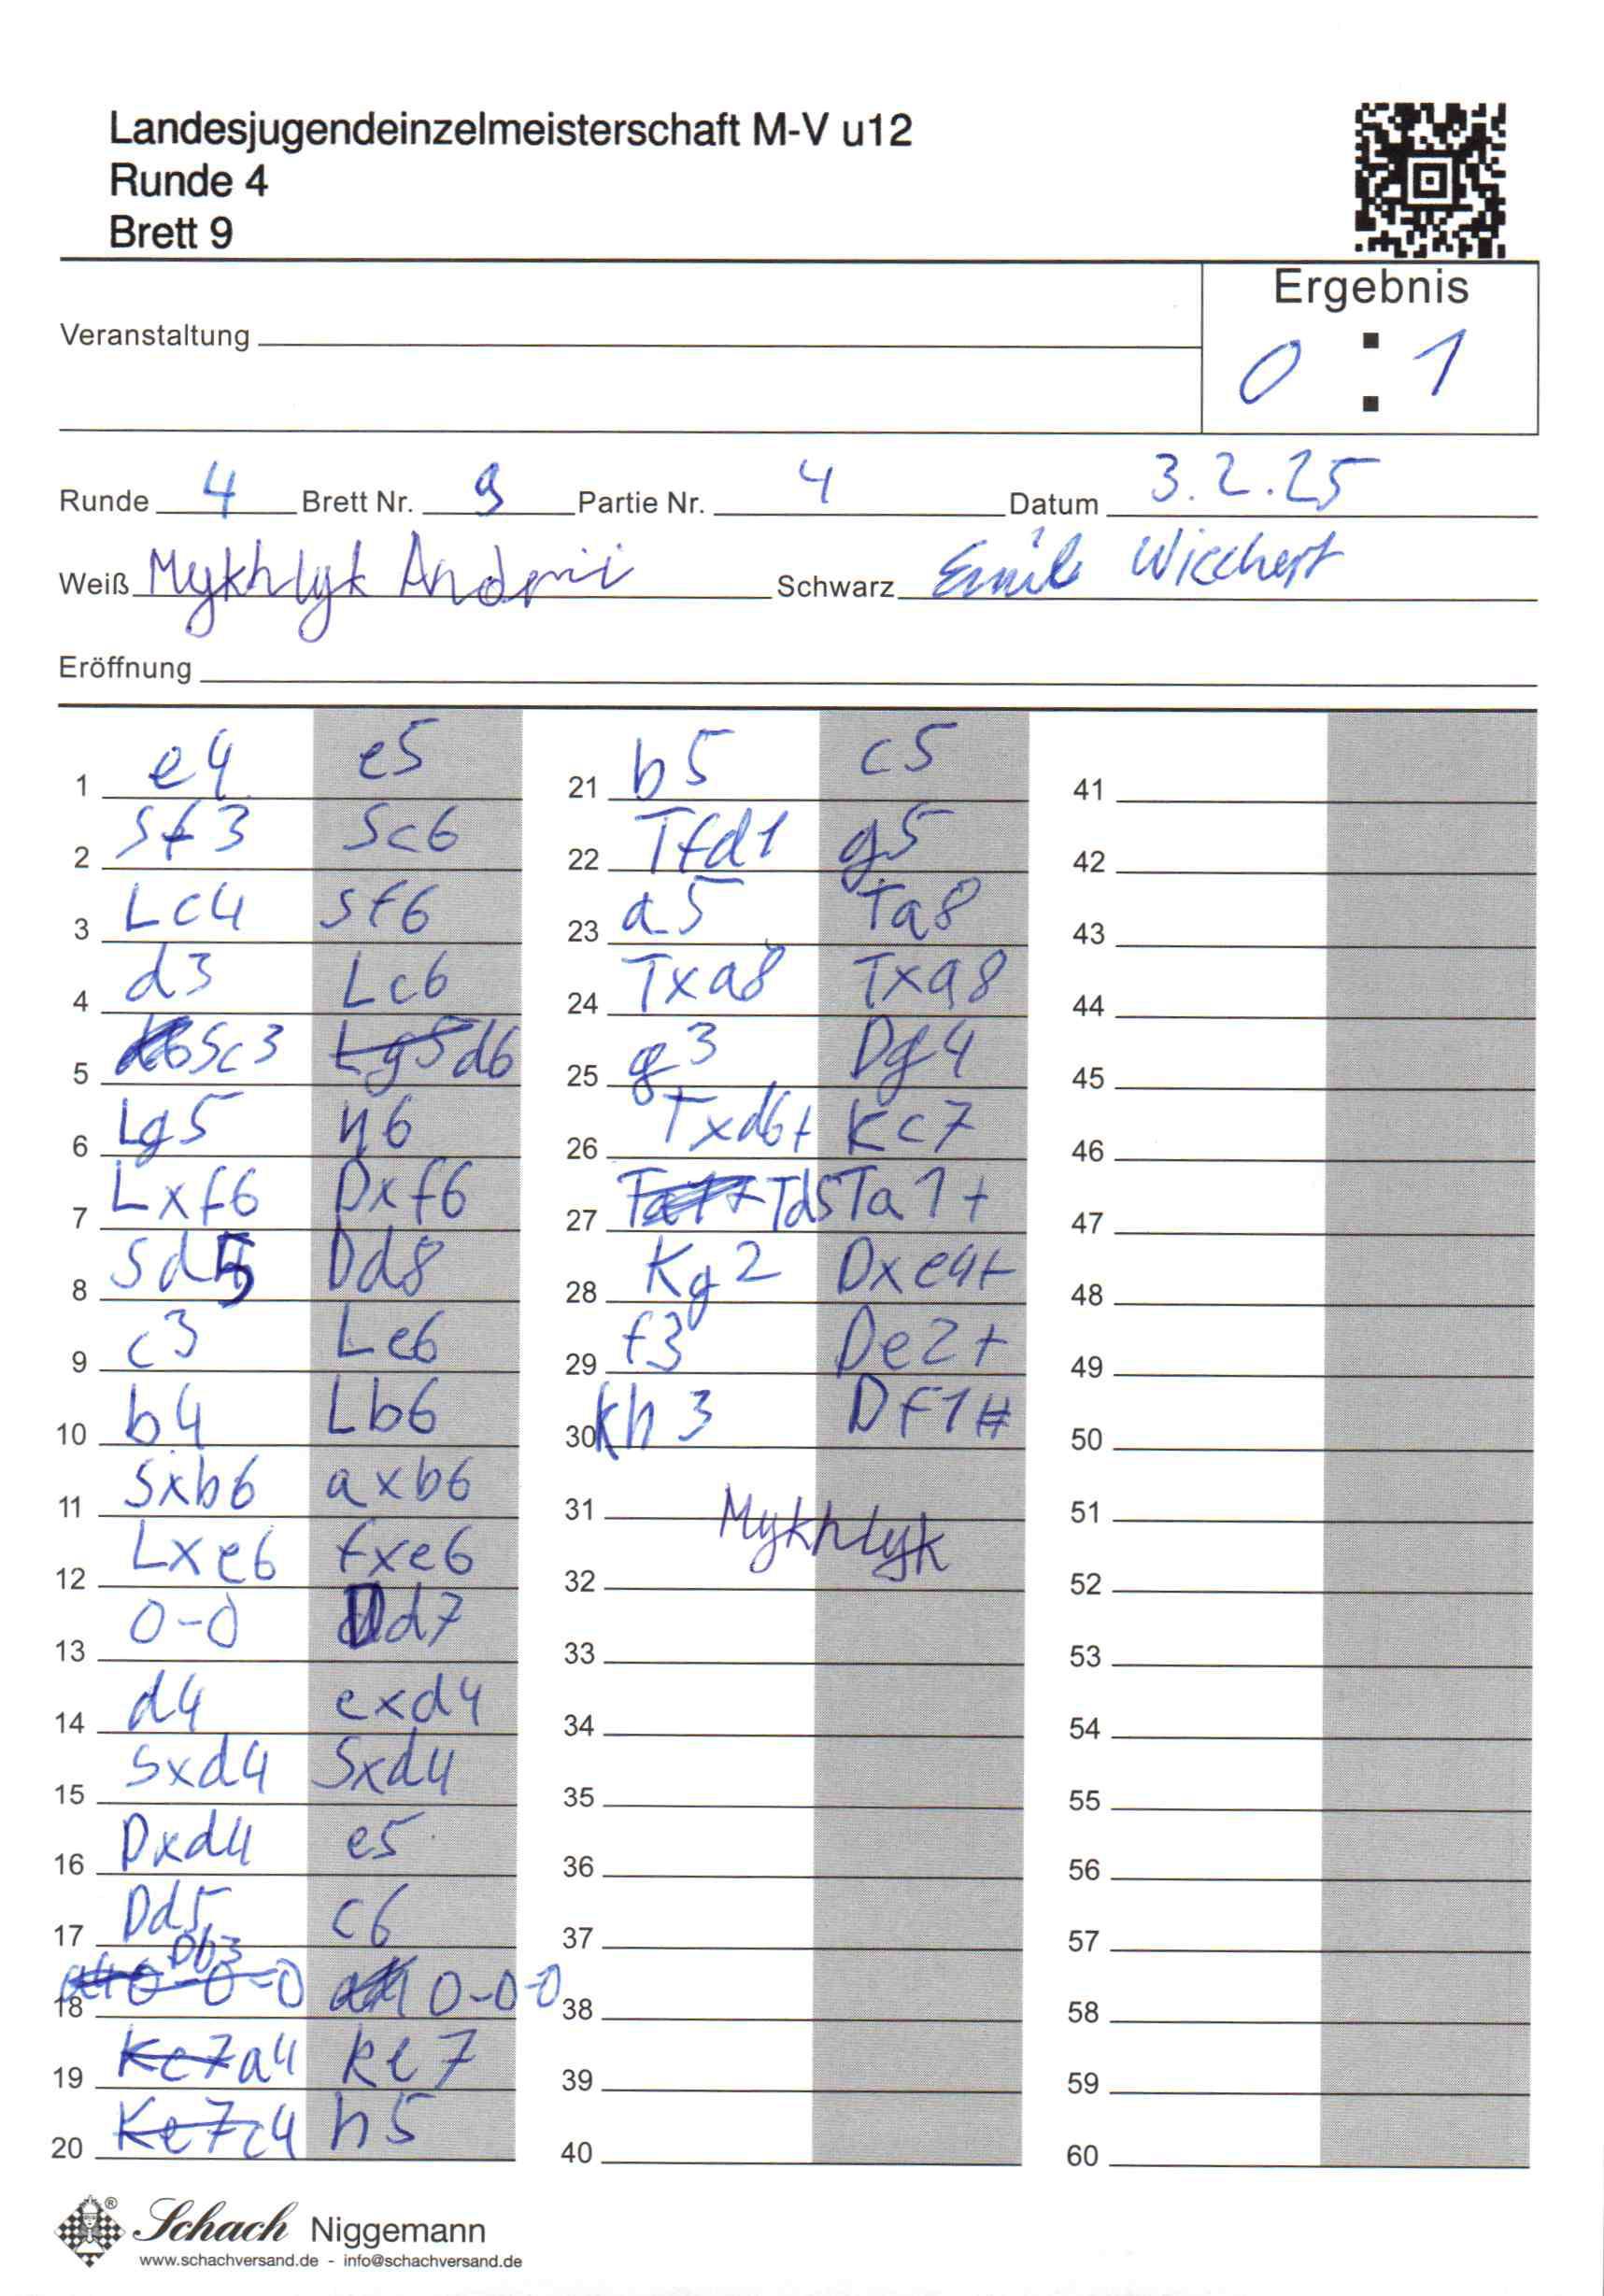 Landesjugendeinzelmeisterschaft M-V u12
Runde 4
Brett 9
Ergebnis
0 : 1
Veranstaltung
Runde 4 Brett Nr. 9 Partie Nr. 4 Datum 3.2.25
Weiß Mykhlyk Andrii Schwarz Emil Wiechert
Eröffnung
1 e4 e5
2 Sf3 Sc6
3 Lc4 Sf6
4 d3 Lc6
5 Sc3 Lg5 d6
6 Lg5 h6
7 Lxf6 Dxf6
8 Sd5 Dd8
9 c3 Le6
10 b4 Lb6
11 Sxb6 axb6
12 Lxe6 fxe6
13 0-0 Dd7
14 d4 exd4
15 Sxd4 Sxd4
16 Dxd4 e5
17 Dd5 c6
18 0-0-0 Db3 0-0-0
19 Kc7 a4 Kc7
20 Kc7 c4 h5
21 b5 c5
22 Tfd1 g5
23 a5 Ta8
24 Txa8 Txa8
25 g3 Dg4
26 Txd6+ Kc7
27 Td5 Ta1+
28 Kg2 Dxe4+
29 f3 De2+
30 Kh3 Df1#
31 Mykhlyk
32
33
34
35
36
37
38
39
40
41
42
43
44
45
46
47
48
49
50
51
52
53
54
55
56
57
58
59
60
® Schach Niggemann
www.schachversand.de - info@schachversand.de